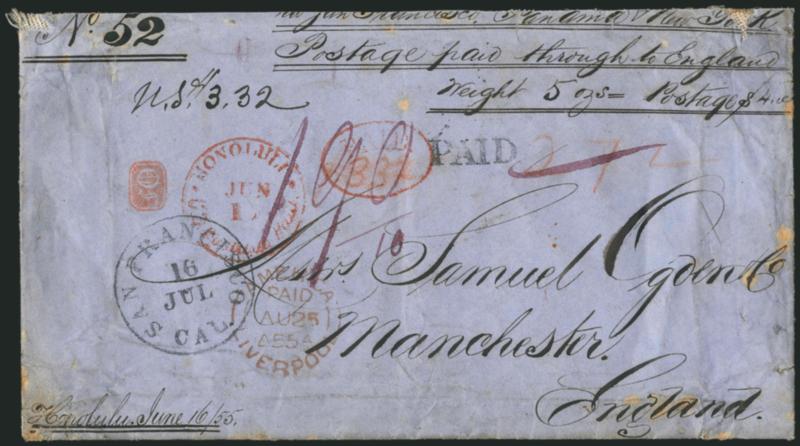 No. 52
via San Francisco, Panama & New York
Postage paid through to England
Weight 5 ozs = Postage $
U.S. 3.32
HONOLULU
JUN
U.S. Postage Paid
PAID
10
SAN FRANCISCO
16
JUL
CAL.
AMERICA
PAID
AU25
LIVERPOOL
Messrs. Samuel Ogden & Co
Manchester.
England.
Honolulu June 16/55.